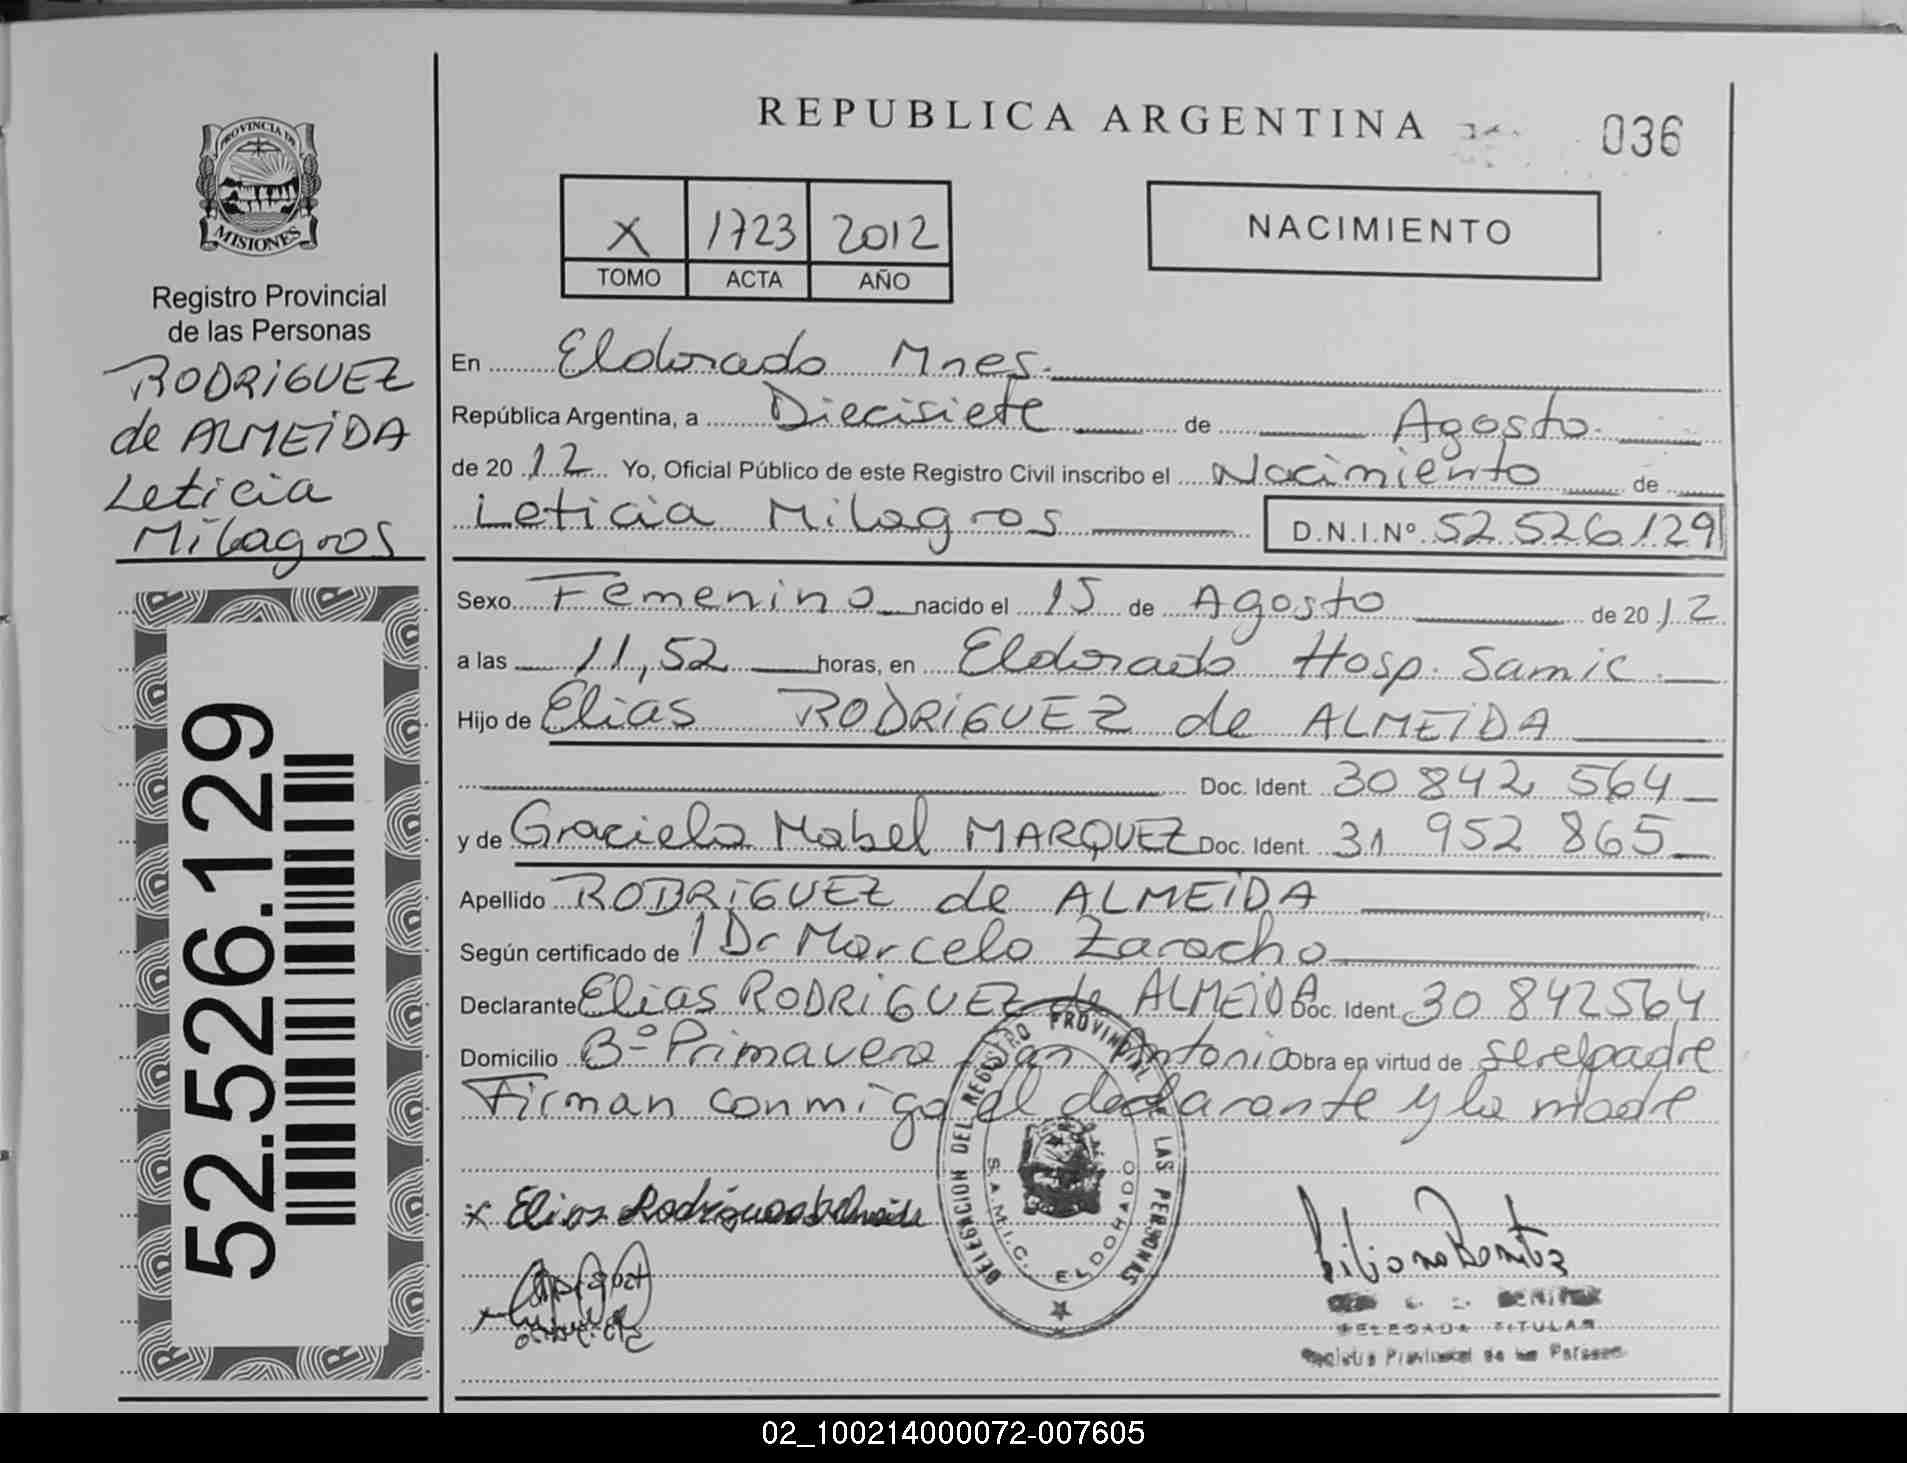 REPUBLICA ARGENTINA
036
PROVINCIA DE
MISIONES
Registro Provincial
de las Personas
RODRIGUEZ
de ALMEIDA
Leticia
Milagros
52.526.129
X 1723 2012
TOMO ACTA AÑO
NACIMIENTO
En Eldorado Mnes.
República Argentina, a Diecisiete de Agosto.
de 20 12 Yo, Oficial Público de este Registro Civil inscribo el Nacimiento de
Leticia Milagros D.N.I.Nº 52 526 129
Sexo Femenino nacido el 15 de Agosto de 20 12
a las 11,52 horas, en Eldorado Hosp. Samic.
Hijo de Elias RODRIGUEZ de ALMEIDA
Doc. Ident. 30 842 564
y de Graciela Mabel MARQUEZ Doc. Ident. 31 952 865
Apellido RODRIGUEZ de ALMEIDA
Según certificado de 1 Dr Marcelo Zaracho
Declarante Elias RODRIGUEZ de ALMEIDA Doc. Ident. 30 842564
Domicilio Bº Primavera San Antonio Obra en virtud de ser el padre
Firman conmigo el declarante y la madre
DELEGACION DEL REGISTRO PROVINCIAL DE LAS PERSONAS
S.A.M.I.C. ELDORADO
x Elias Rodriguez
BENITEZ
DELEGADA TITULAR
Registro Provincial de las Personas
02_100214000072-007605